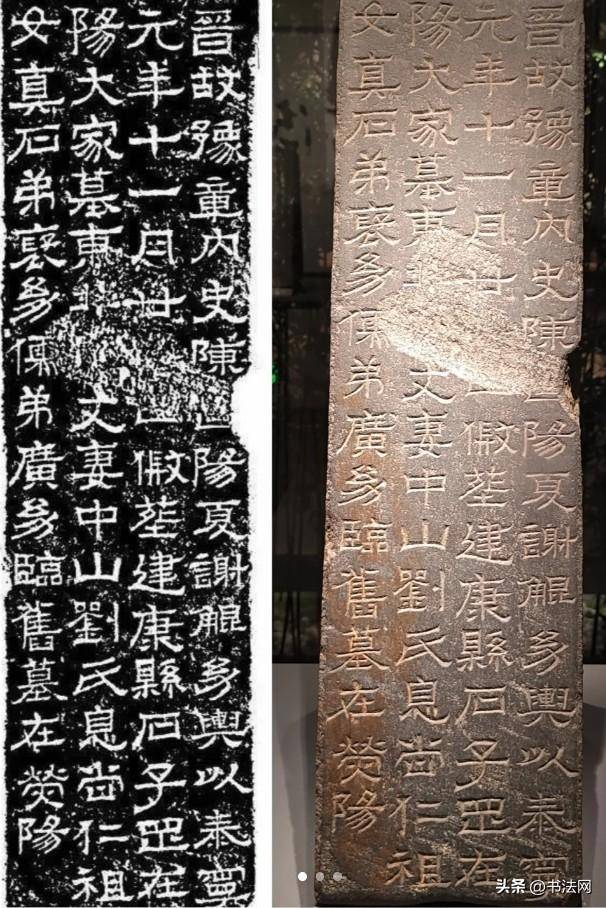 晉故豫章內史陳陽夏謝鯤幼輿以泰寧
元年十一月廿假葬建康縣石子罡在
陽大家墓東北丈妻中山劉氏息尚仁祖
女真石弟裒幼儒弟廣幼臨舊墓在熒陽
晉故豫章內史陳陽夏謝鯤幼輿以泰寧
元年十一月廿假葬建康縣石子罡在
陽大家墓東丈妻中山劉氏息尚仁祖
女真石弟裒幼儒弟廣幼臨舊墓在熒陽
头条 @书法网